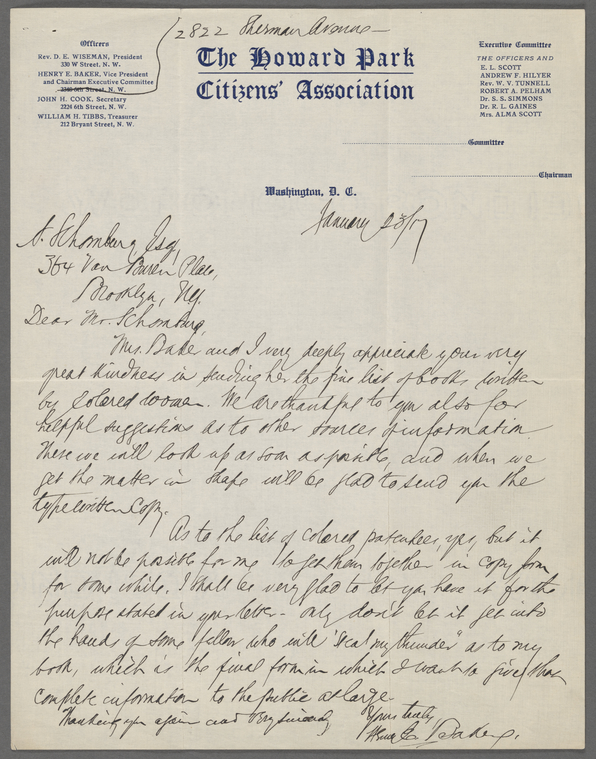 2822 Sherman Avenue -
Officers
Rev. D. E. WISEMAN, President
330 W Street, N. W.
HENRY E. BAKER, Vice President
and Chairman Executive Committee
2348 6th Street, N. W.
JOHN H. COOK, Secretary
2224 6th Street, N. W.
WILLIAM H. TIBBS, Treasurer
212 Bryant Street, N. W.
The Howard Park
Citizens' Association
Executive Committee
THE OFFICERS AND
E. L. SCOTT
ANDREW F. HILYER
Rev. W. V. TUNNELL
ROBERT A. PELHAM
Dr. S. S. SIMMONS
Dr. R. L. GAINES
Mrs. ALMA SCOTT
Committee
Chairman
Washington, D. C.
January 23/17
A. Schomburg, Esq,
364 Van Buren Place,
Brooklyn, NY.
Dear Mr. Schomburg,
Mrs. Baker and I very deeply appreciate your very
great kindness in sending her the fine list of books written
by colored women. We are thankful to you also for
helpful suggestions as to other sources of information.
These we will look up as soon as possible, and when we
get the matter in shape will be glad to send you the
typewritten copy.
As to the list of colored patentees, yes, but it
will not be possible for me to get them together in copy form
for some while. I shall be very glad to let you have it for the
purpose stated in your letter - only don't let it get into
the hands of some fellow who will "steal my thunder" as to my
book, which is the final form in which I want to give that
complete information to the public at large.
Thanking you again and very sincerely
Yours truly,
Henry E. Baker.